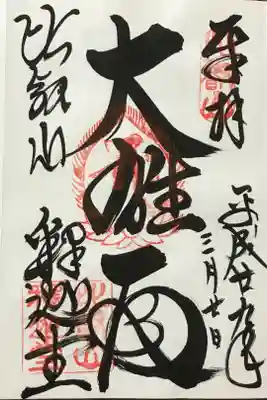 奉拝
平成廿九年
三月廿日
大雄殿
比叡山
釋迦堂